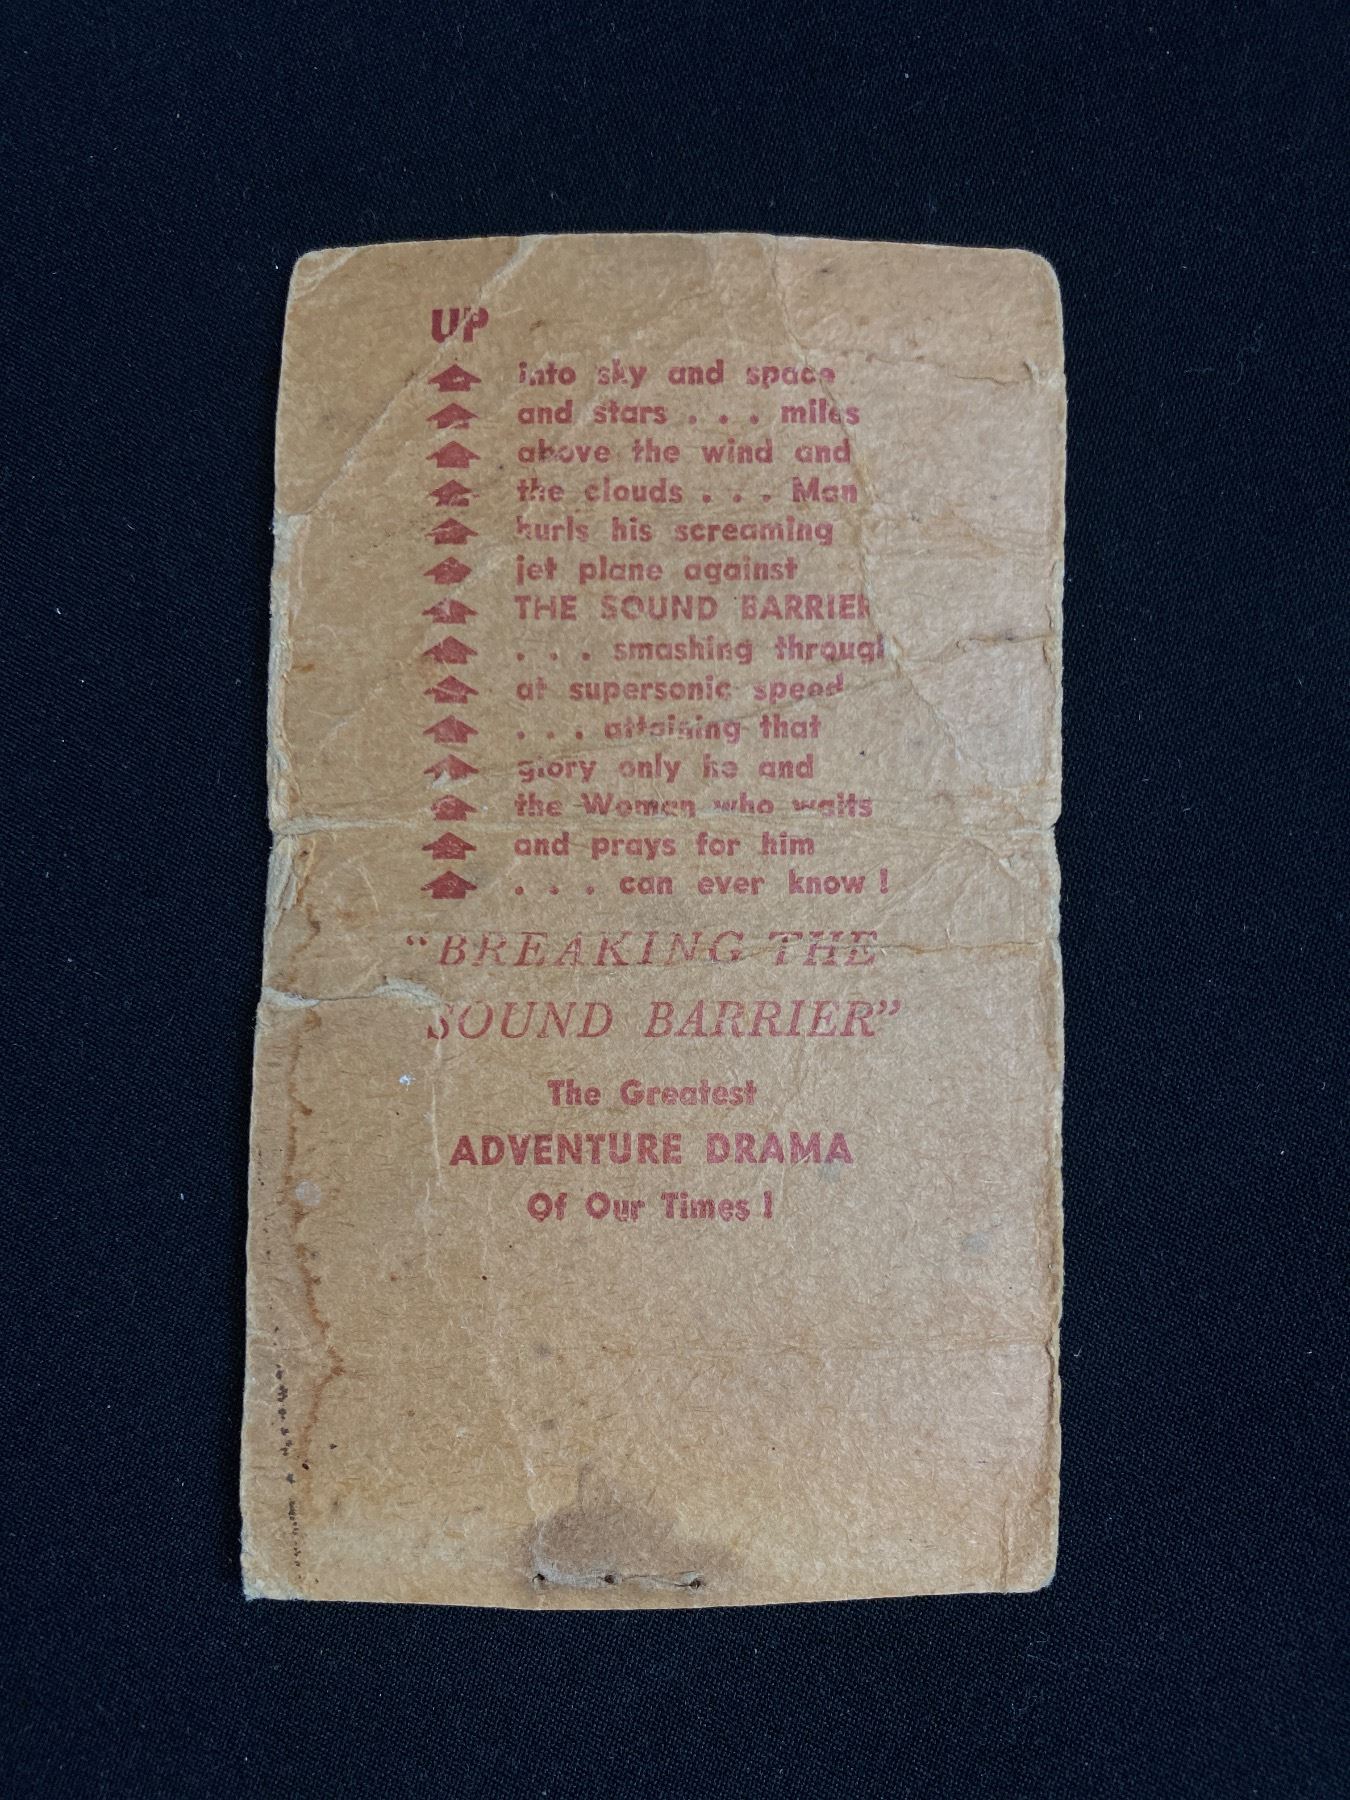 UP
into sky and space
and stars . . . miles
above the wind and
the clouds . . . Man
hurls his screaming
jet plane against
THE SOUND BARRIER
. . . smashing through
at supersonic speed
. . . attaining that
glory only he and
the Woman who waits
and prays for him
. . . can ever know !
“BREAKING THE
SOUND BARRIER”
The Greatest
ADVENTURE DRAMA
Of Our Times !